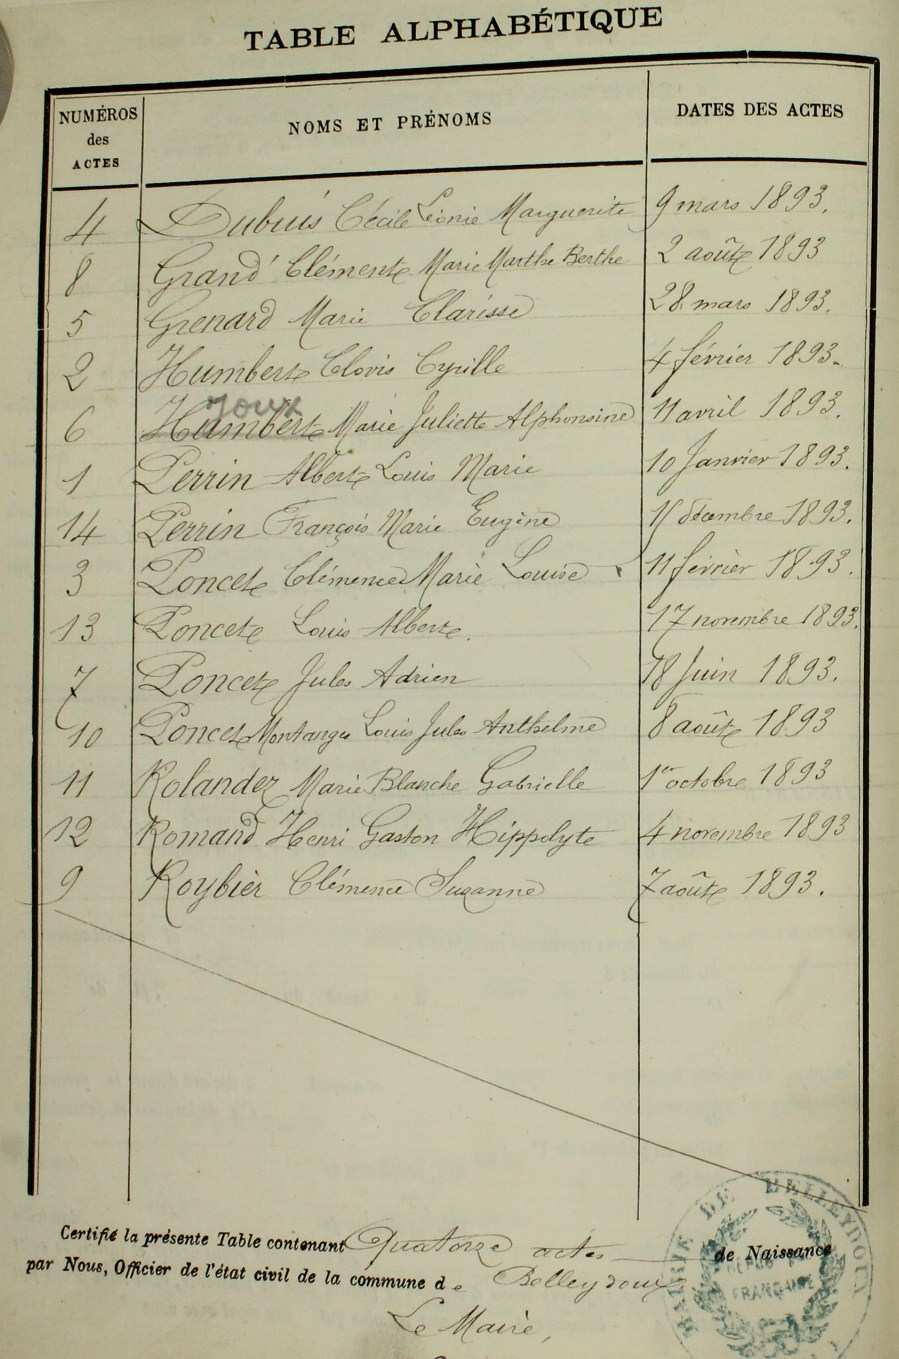 TABLE ALPHABÉTIQUE
NUMÉROS des ACTES NOMS ET PRÉNOMS DATES DES ACTES
4 Dubuis Cécile Léonie Marguerite 9 mars 1893.
8 Grand Clémente Marie Marthe Berthe 2 août 1893
5 Grenard Marie Clarisse 28 mars 1893.
2 Humbert Clovis Cyrille 4 février 1893.
Joux
6 Humbert Marie Juliette Alphonsine 11 avril 1893.
1 Perrin Albert Louis Marie 10 Janvier 1893.
14 Perrin François Marie Eugène décembre 1893.
3 Poncet Clémence Marie Louise 11 février 1893.
13 Poncet Louis Albert. 17 novembre 1893.
7 Poncet Jules Adrien 18 Juin 1893.
10 Poncet Montange Louis Jules Anthelme 8 août 1893
11 Rolandez Marie Blanche Gabrielle 1er octobre 1893
12 Romand Henri Gaston Hippolyte 4 novembre 1893
9 Roybier Clémence Suzanne 7 août 1893.
Certifié la présente Table contenant Quatorze actes de Naissance
par Nous, Officier de l'état civil de la commune de Belleydoux
Le Maire,
MAIRIE DE BELLEYDOUX
FRANÇAISE